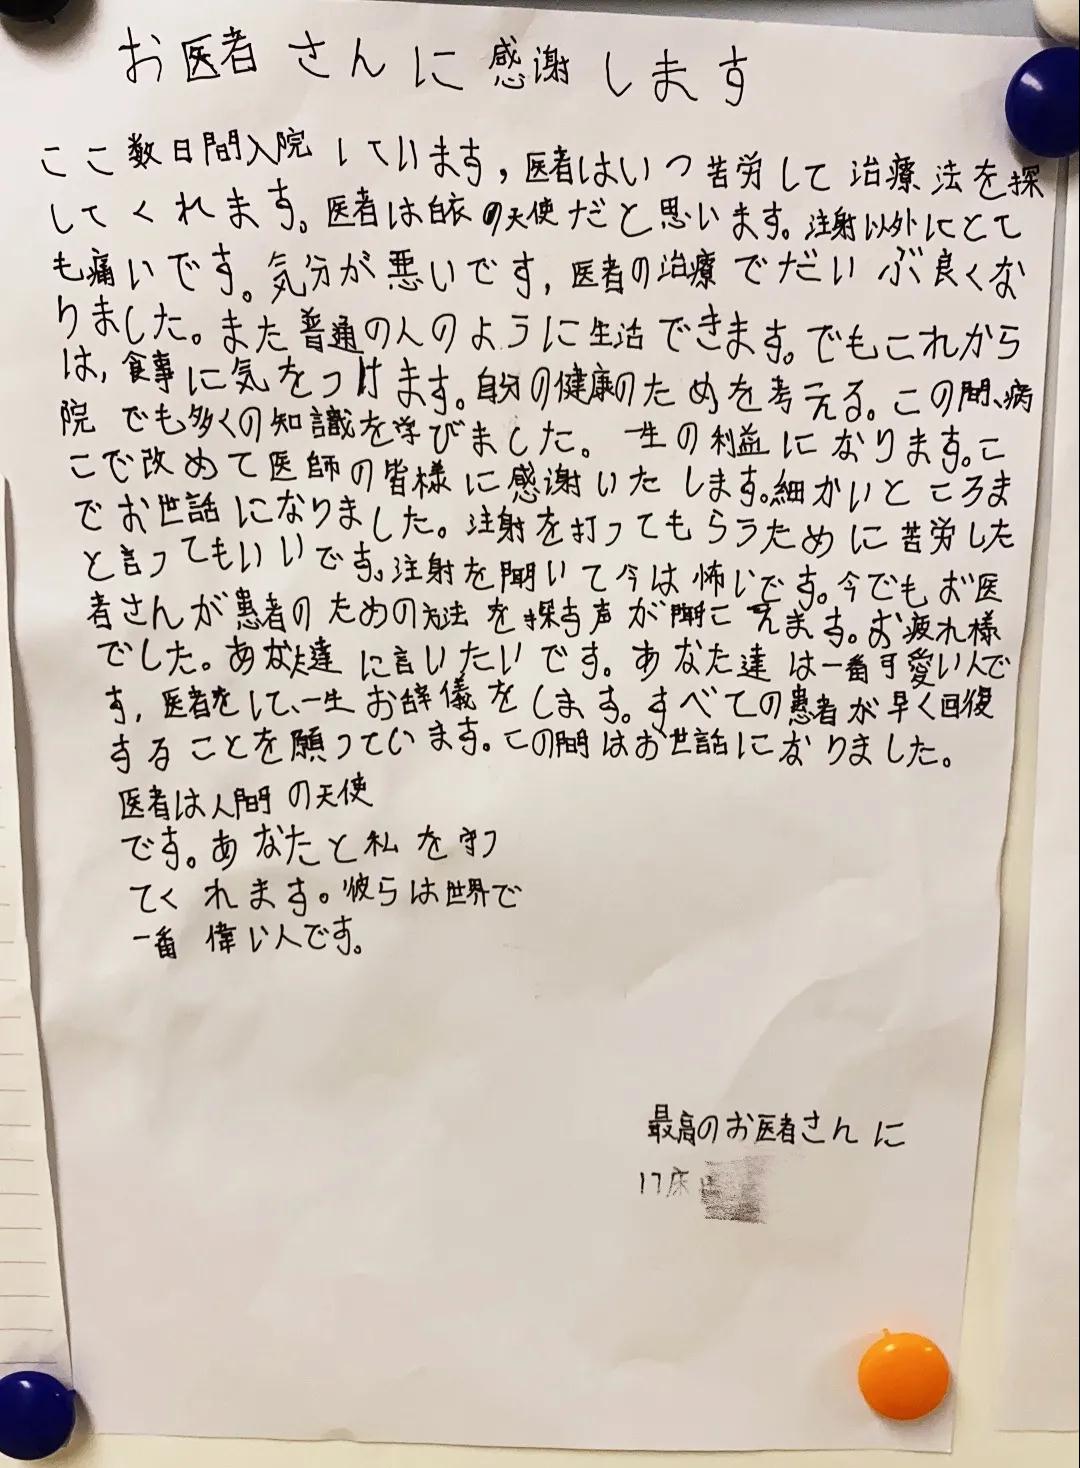 お医者さんに感謝します
ここ数日間入院しています，医者はいつ苦労して治療法を探
してくれます。医者は白衣の天使だと思います。注射以外にとて
も痛いです。気分が悪いです，医者の治療でだいぶ良くな
りました。また普通の人のように生活できます。でもこれから
は，食事に気をつけます。自分の健康のためを考える。この間、病
院でも多くの知識を学びました。一生の利益になります。こ
こで改めて医師の皆様に感謝いたします。細かいところま
でお世話になりました。注射を打ってもらうために苦労した
と言ってもいいです。注射を聞いて今は怖いです。今でもお医
者さんが患者のための方法を探す声が聞こえます。お疲れ様
でした。あなた達に言いたいです。あなた達は一番可愛い人で
す，医者をして、一生お辞儀をします。すべての患者が早く回復
することを願っています。この間はお世話になりました。
医者は人間の天使
です。あなたと私を守っ
てくれます。彼らは世界で
一番偉い人です。
最高のお医者さんに
17床